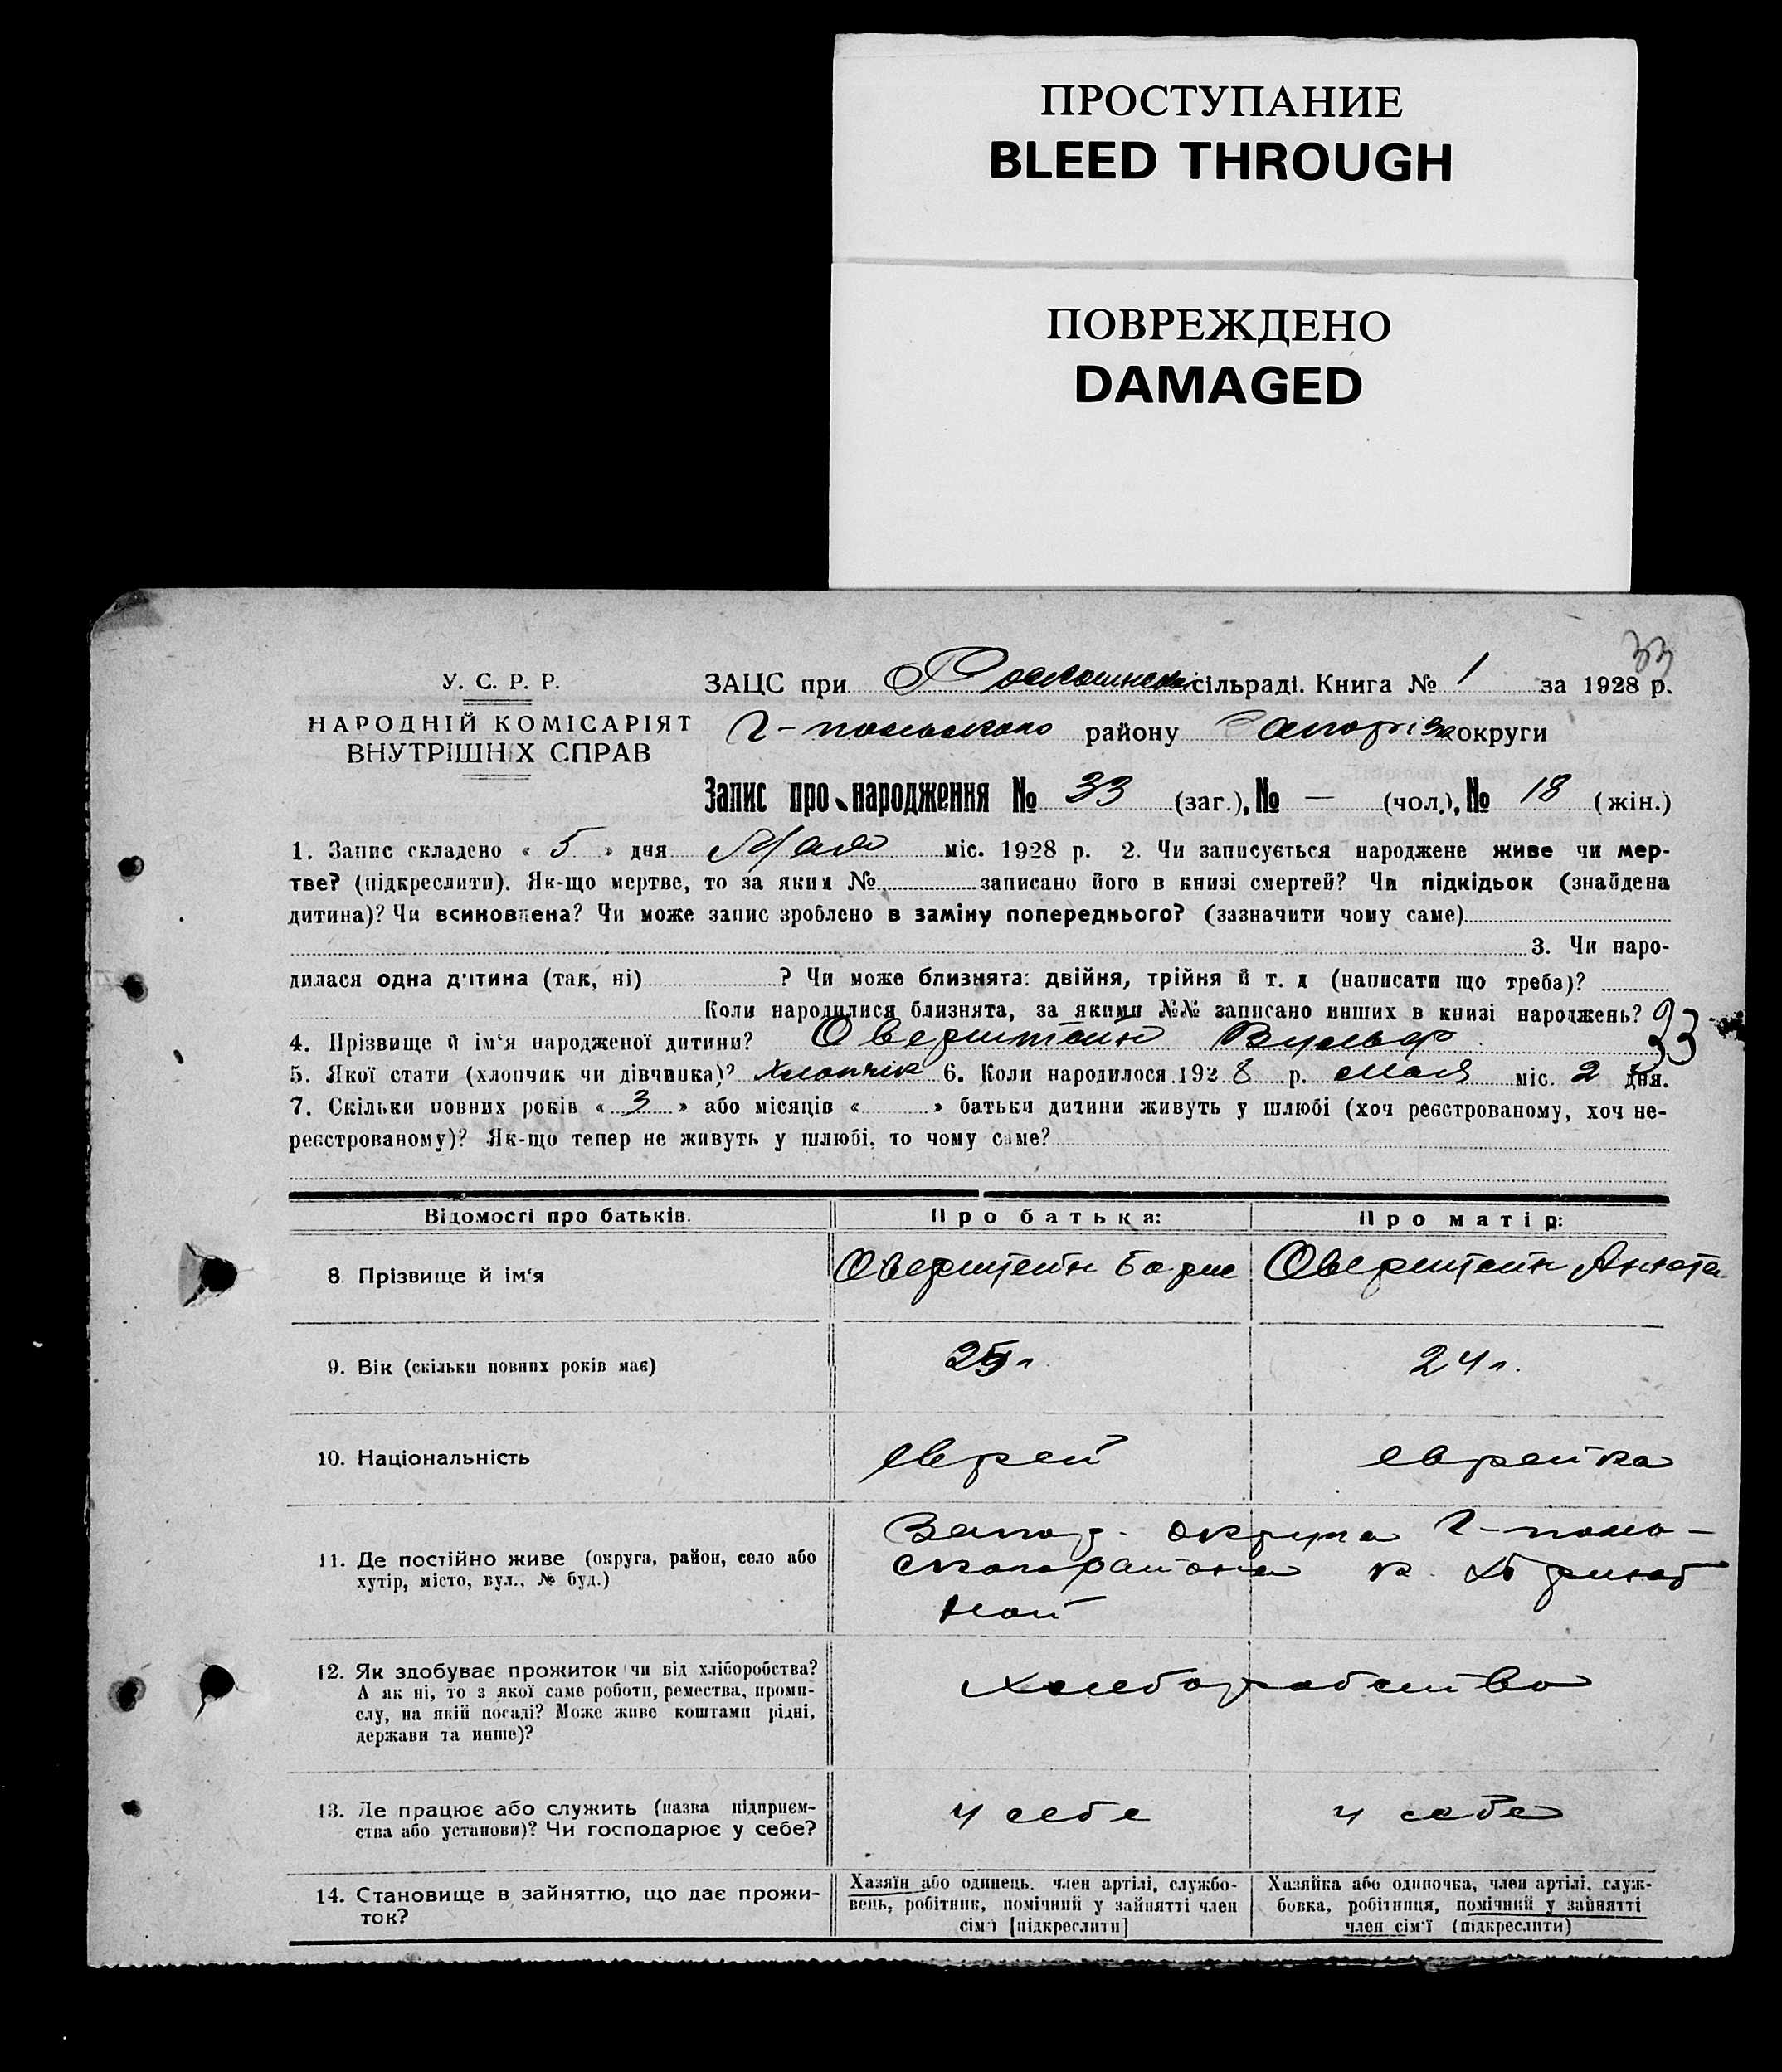 ПРОСТУПАНИЕ
BLEED THROUGH
ПОВРЕЖДЕНО
DAMAGED
33
У. С. Р. Р.
НАРОДНІЙ КОМІСАРІЯТ
ВНУТРІШНІХ СПРАВ
ЗАЦС при сільраді. Книга № 1 за 1928 р.
району округи
Запис про народження № 33 (заг.), № — (чол.), № 18 (жін.)
1. Запис складено « 5 » дня Мая міс. 1928 р. 2. Чи записується народжене живе чи мер-
тве? (підкреслити). Як-що мертве, то за яким № записано його в книзі смертей? Чи підкідьок (знайдена
дитина)? Чи всиновлена? Чи може запис зроблено в заміну попереднього? (зазначити чому саме)
3. Чи наро-
дилася одна дитина (так, ні) ? Чи може близнята: двійня, трійня й т. д (написати що треба)?
Коли народилися близнята, за якими №№ записано инших в книзі народжень?
33
4. Прізвище й ім‘я народженої дитини? Оверштейн Вульф
5. Якої стати (хлопчик чи дівчинка)? Хлопчік 6. Коли народилося 1928 р. Мая міс. 2 дня.
7. Скільки повних років « 3 » або місяців « » батьки дитини живуть у шлюбі (хоч реєстрованому, хоч не-
реєстрованому)? Як-що тепер не живуть у шлюбі, то чому саме?
Відомості про батьків. Про батька: Про матір:
8. Прізвище й ім‘я Оверштейн Борис Оверштейн Анюта
9. Вік (скільки повних років має) 24 г.
10. Національність еврей еврейка
11. Де постійно живе (округа, район, село або
хутір, місто, вул., № буд.)
Запор. округа
района к.
12. Як здобуває прожиток чи від хліборобства?
А як ні, то з якої саме роботи, ремества, проми-
слу, на якій посаді? Може живе коштами рідні,
держави та инше)?
Хлеборобство
13. Де працює або служить (назва підприєм-
ства або установи)? Чи господарює у себе?
у себе у себе
14. Становище в зайняттю, що дає прожи-
ток?
Хазяїн або одинець. член артілі, службо-
вець, робітник, помічний у зайнятті член
сім‘ї [підкреслити]
Хазяйка або одиночка, член артілі, служ-
бовка, робітниця, помічний у зайнятті
член сім‘ї (підкреслити)